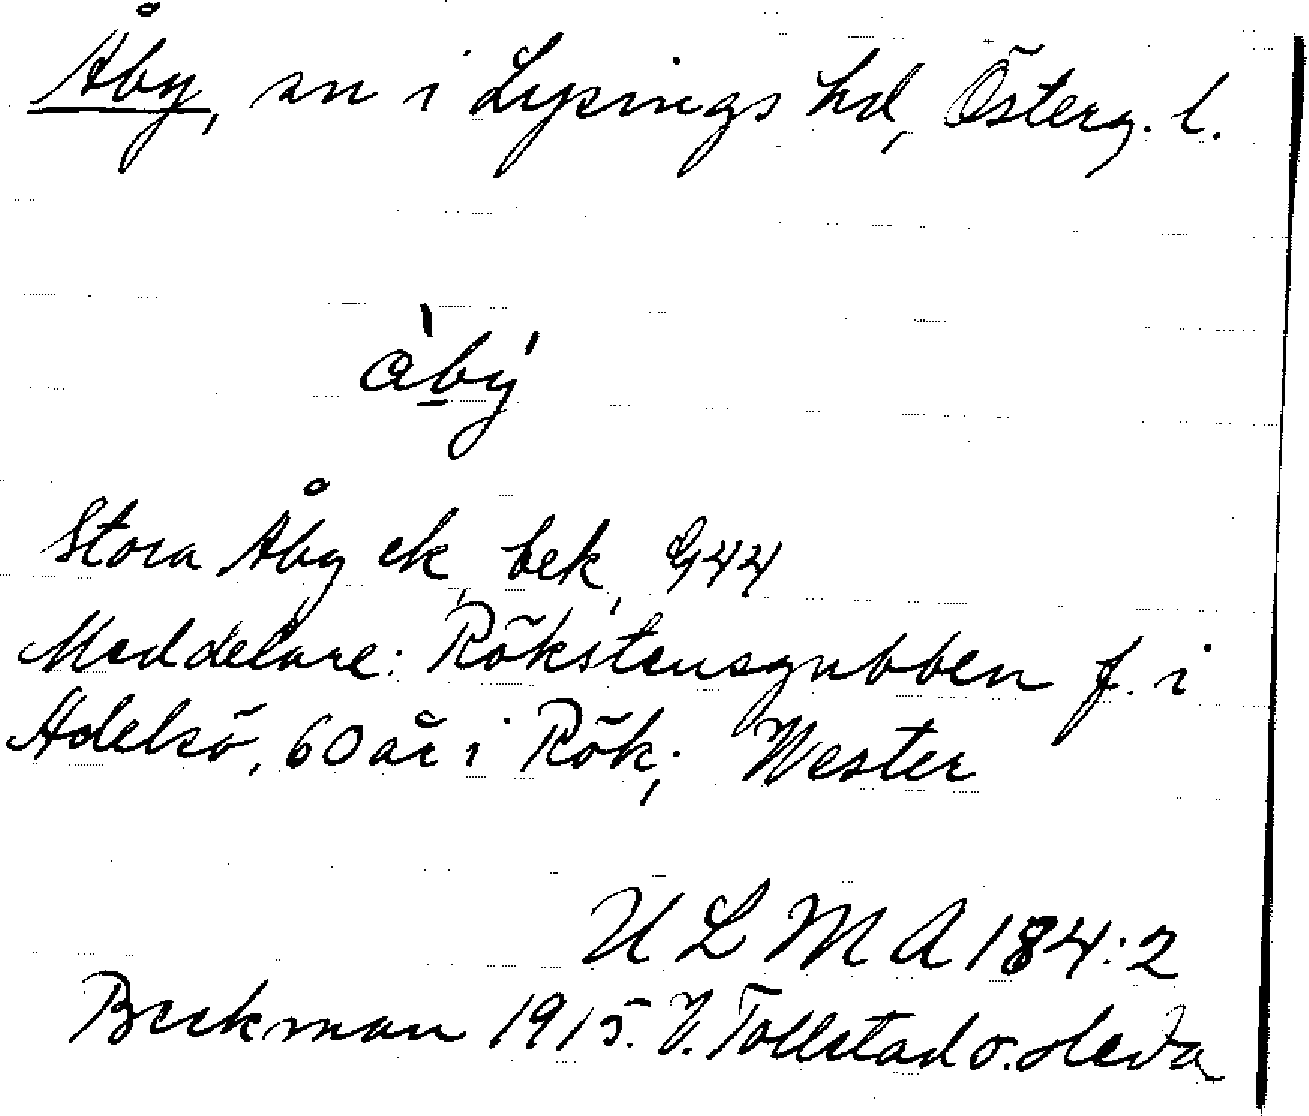 Åby, sn i Lysings hd, Österg. l.
àbý
Stora Åby ek, bek, G44
Meddelare: Rökstensgubben f. i
Adelsö, 60 år i Rök; Wester
ULMA 184:2
Beckman 1915. V. Tollstad o. Heda